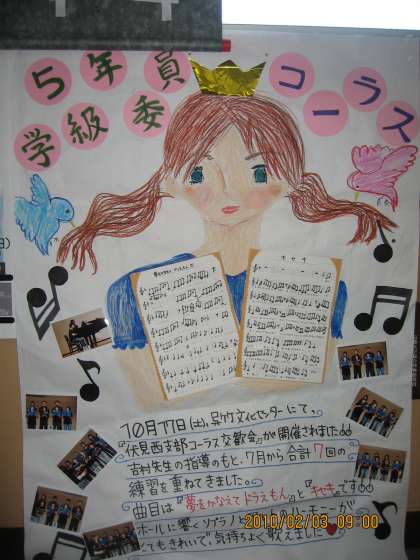 5年
学級委員
コーラス
10月17日(土)、呉竹文化センターにて、
『伏見西支部コーラス交歓会』が開催されました
吉村先生の指導のもと、7月から合計7回の
練習を重ねてきました。
曲目は『夢をかなえてドラえもん』と『キセキ』です
ホールに響くソプラノと
てもきれいで、気持ちよく歌えました
2010/02/03 09:00